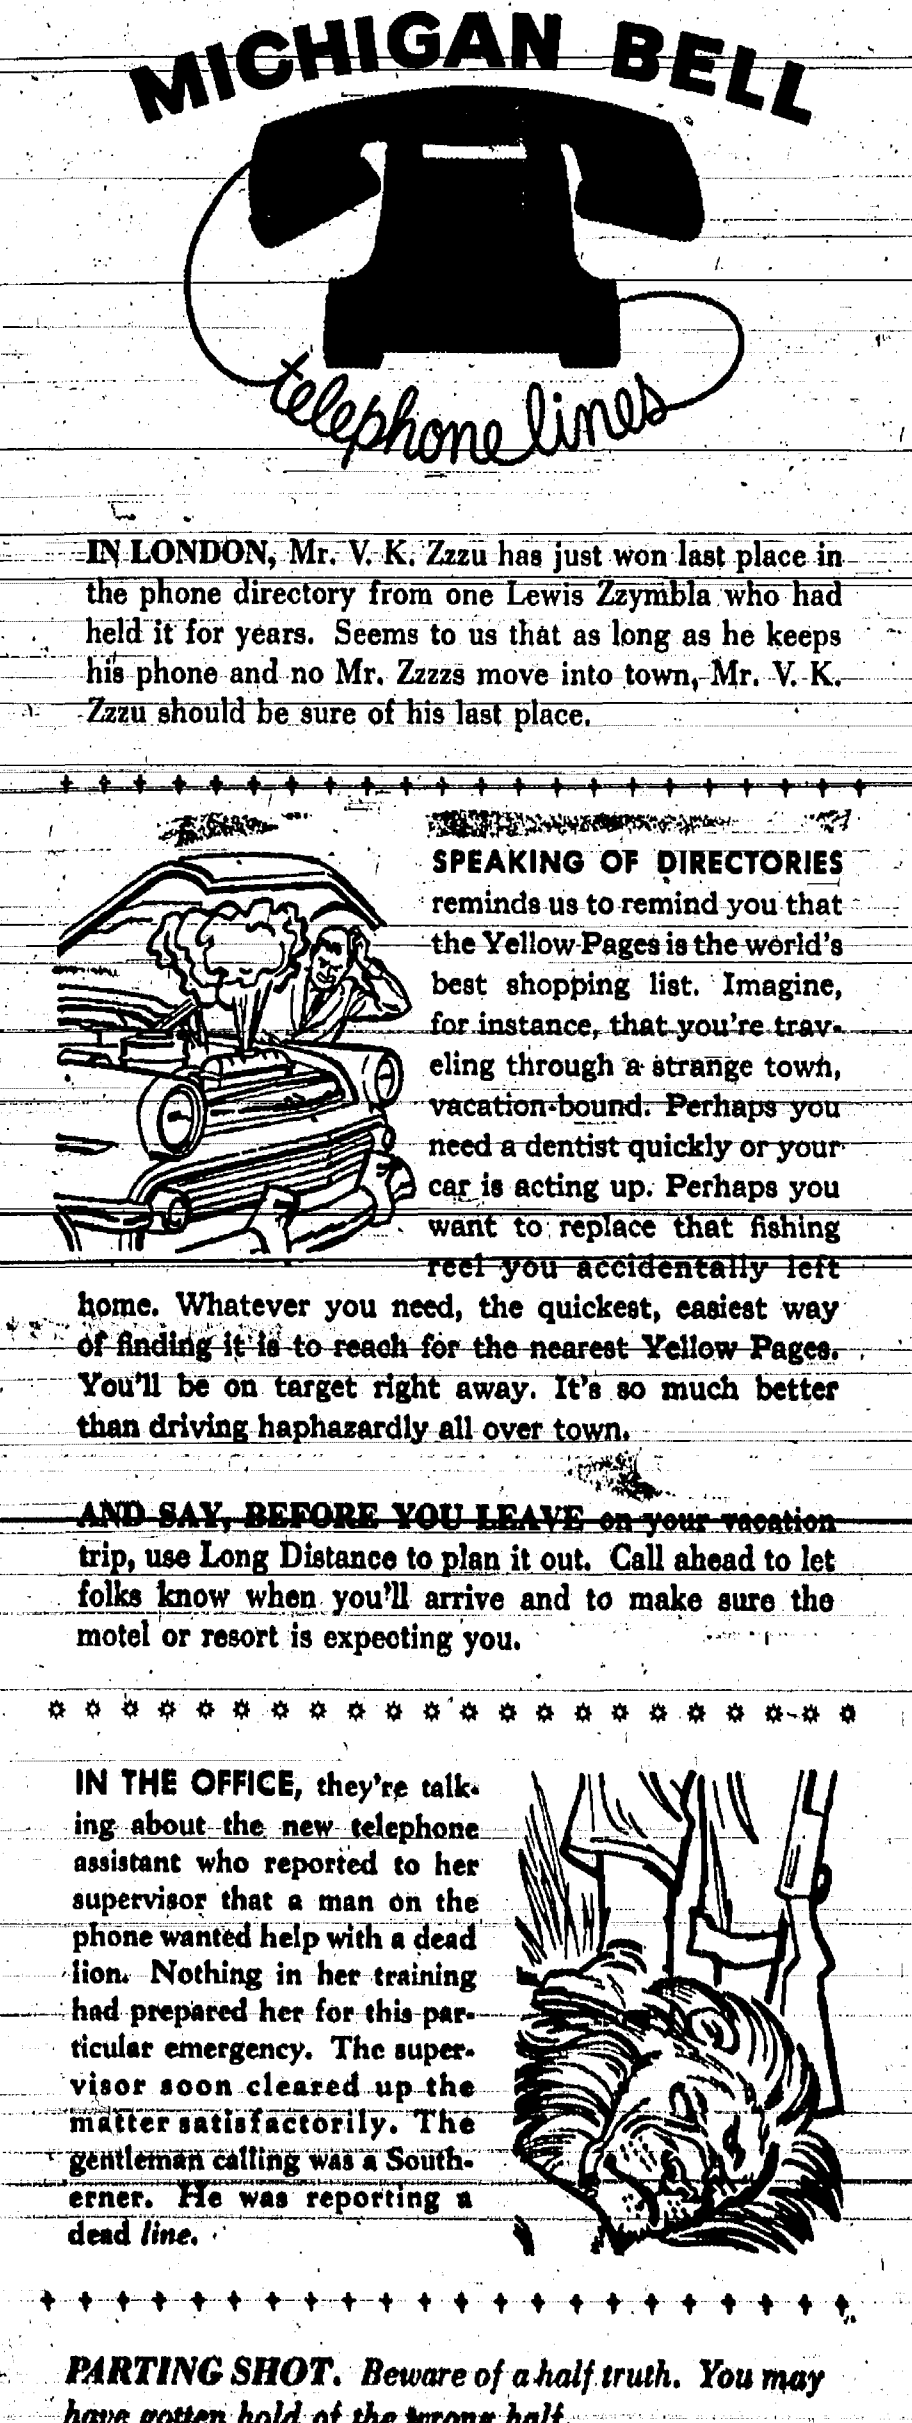 MICHIGAN BELL
telephone lines
IN LONDON, Mr. V. K. Zzzu has just won last place in
the phone directory from one Lewis Zzymbla who had
held it for years. Seems to us that as long as he keeps
his phone and no Mr. Zzzzs move into town, Mr. V. K.
Zzzu should be sure of his last place.
SPEAKING OF DIRECTORIES
reminds us to remind you that
the Yellow Pages is the world's
best shopping list. Imagine,
for instance, that you're trav-
eling through a strange town,
vacation-bound. Perhaps you
need a dentist quickly or your
car is acting up. Perhaps you
want to replace that fishing
reel you accidentally left
home. Whatever you need, the quickest, easiest way
of finding it is to reach for the nearest Yellow Pages.
You'll be on target right away. It's so much better
than driving haphazardly all over town.
AND SAY, BEFORE YOU LEAVE on your vacation
trip, use Long Distance to plan it out. Call ahead to let
folks know when you'll arrive and to make sure the
motel or resort is expecting you.
IN THE OFFICE, they're talk-
ing about the new telephone
assistant who reported to her
supervisor that a man on the
phone wanted help with a dead
lion. Nothing in her training
had prepared her for this par-
ticular emergency. The super-
visor soon cleared up the
matter satisfactorily. The
gentleman calling was a South-
erner. He was reporting a
dead line.
PARTING SHOT. Beware of a half truth. You may
have gotten hold of the wrong half.